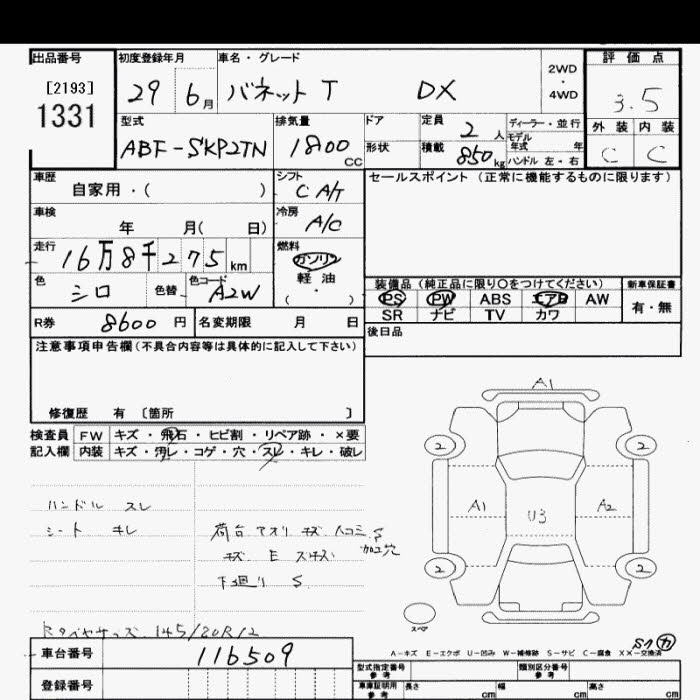 出品番号
[2193]
1331
初度登録年月
29 6月
車名・グレード
バネット T DX
2WD
・
4WD
評価点
3.5
外装 内装
C C
型式
ABF-SKP2TN
排気量
1800 CC
ドア
形状
定員
2 人
積載
850 kg
ディーラー・並行
モデル
年式 年
ハンドル 左・右
車歴
自家用・( )
シフト
C A/T
セールスポイント (正常に機能するものに限ります)
車検
年 月( 日)
冷房
A/C
走行
16万8千275 km
燃料
ガソリン
軽・油
( ・ )
色
シロ
色替
色コード
A2W
装備品(純正品に限り○をつけてください)
PS PW ABS エアB AW
SR ナビ TV カワ
新車保証書
有・無
R券 8600 円
名変期限 月 日
後日品
注意事項申告欄(不具合内容等は具体的に記入して下さい)
修復歴 有 〔箇所 〕
検査員
記入欄
FW キズ・飛石・ヒビ割・リペア跡・×要
内装 キズ・汚レ・コゲ・穴・スレ・キレ・破レ
ハンドル スレ
シート キレ
荷台 アオリ キズ 凹コミ
加工穴
キズ E
下廻り S
タイヤサイズ 145/80R12
A1
2 2
A1 U3 A2
2 2
スペア
A-キズ E-エクボ U-凹み W-補修跡 S-サビ C-腐食 XX-交換済
車台番号
116509
登録番号
型式指定番号
参考
類別区分番号
参考
車庫証明用
参考
長さ cm
幅 cm
高さ cm